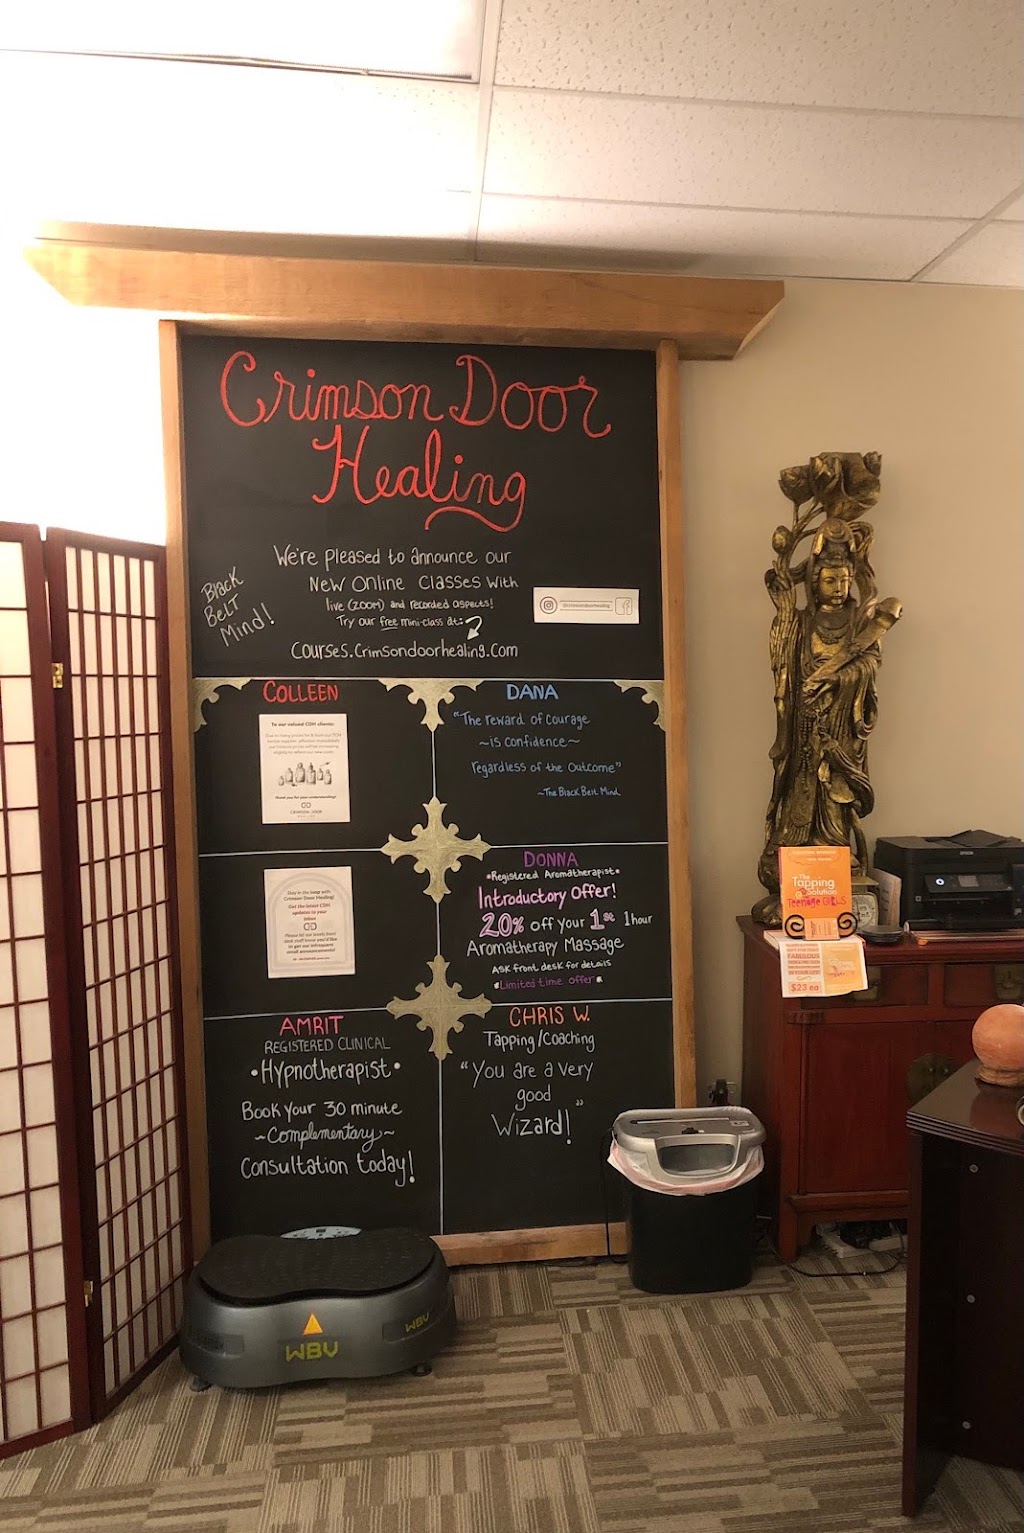 Crimson Door
Healing
We're pleased to announce our
New Online Classes with
live (ZOOM) and recorded aspects!
Try our free mini-class at:
courses.crimsondoorhealing.com
Black
Belt
Mind!
@crimsondoorhealing
COLLEEN
To our valued CDH clients:
Thank you for your understanding!
CRIMSON DOOR
DANA
"The reward of courage
~is confidence~
regardless of the outcome"
~The Black Belt Mind
Stay in the loop with
Crimson Door Healing!
Get the latest CDH
updates to your
inbox
Please let our lovely front
desk staff know you'd like
to get our infrequent
email announcements!
DONNA
*Registered Aromatherapist*
Introductory Offer!
20% off your 1st 1 hour
Aromatherapy Massage
Ask front desk for details
*Limited time offer*
AMRIT
REGISTERED CLINICAL
•Hypnotherapist•
Book your 30 minute
~Complementary~
Consultation today!
CHRIS W.
Tapping/Coaching
"You are a very
good
Wizard!"
The
Tapping
Solution
Teenage GIRLS
FABULOUS
$23 ea
EPSON
WBV
WBV